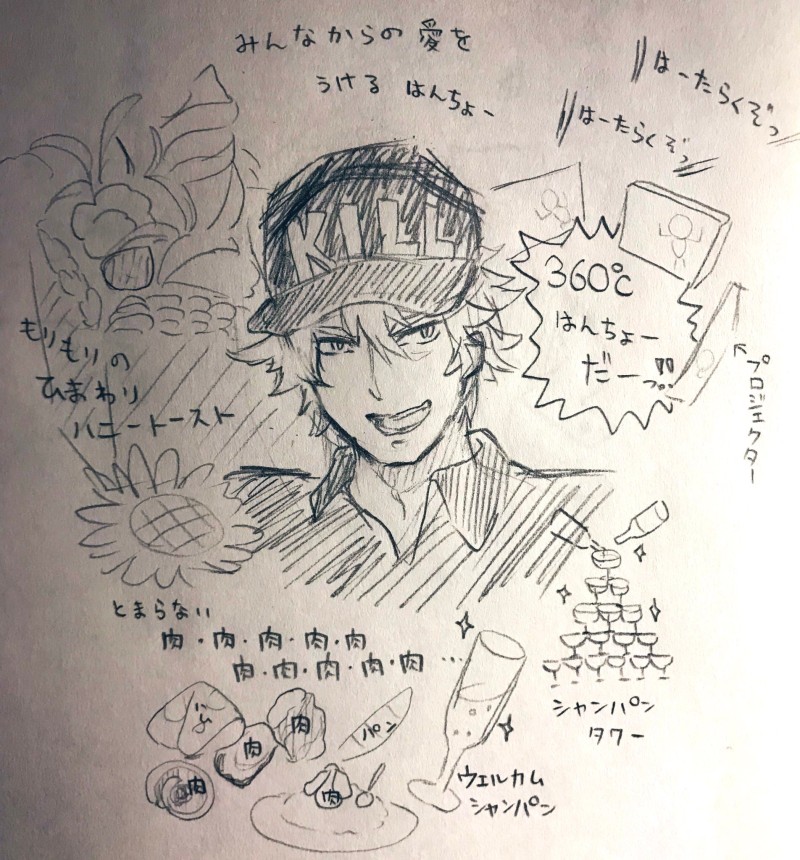 みんなからの愛を
うける はんちょー
はーたらくぞっ
はーたらくぞっ
KILL
360℃
はんちょー
だーっ!!
プロジェクター
もりもりの
ひまわり
ハニートースト
とまらない
肉・肉・肉・肉・肉
肉・肉・肉・肉・肉…
肉
肉
パン
肉
肉
シャンパン
タワー
ウェルカム
シャンパン